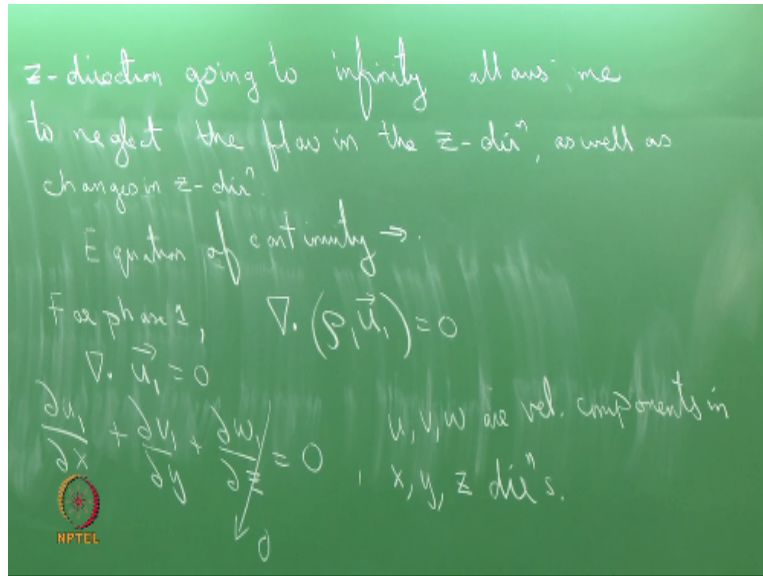 z-direction going to infinity allows me
to neglect the flow in the z-dirⁿ, as well as
changes in z-dirⁿ.
Equation of continuity →.
For phase 1, ∇.(ρ₁u⃗₁) = 0
∇. u⃗₁ = 0
∂u₁/∂x + ∂v₁/∂y + ∂w₁/∂z = 0 , u, v, w are vel. components in
x, y, z dirⁿs.
0
NPTEL